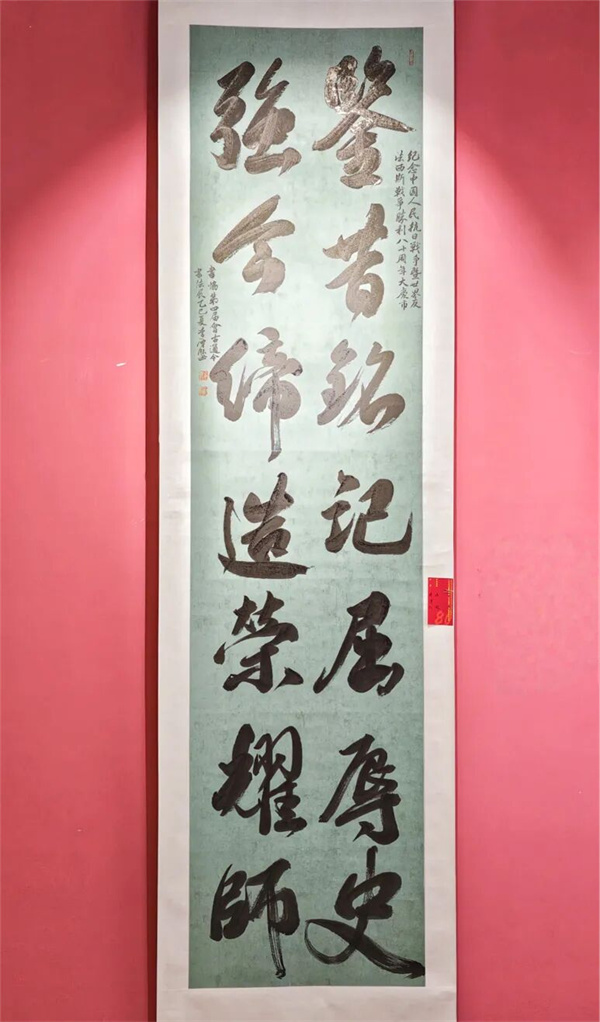 紀念中国人民抗日戰爭暨世界反
法西斯戰爭勝利八十周年大慶市
鑒昔銘記屈辱史
強今締造榮耀師
書協第四屆會古通今
書法展乙巳夏李